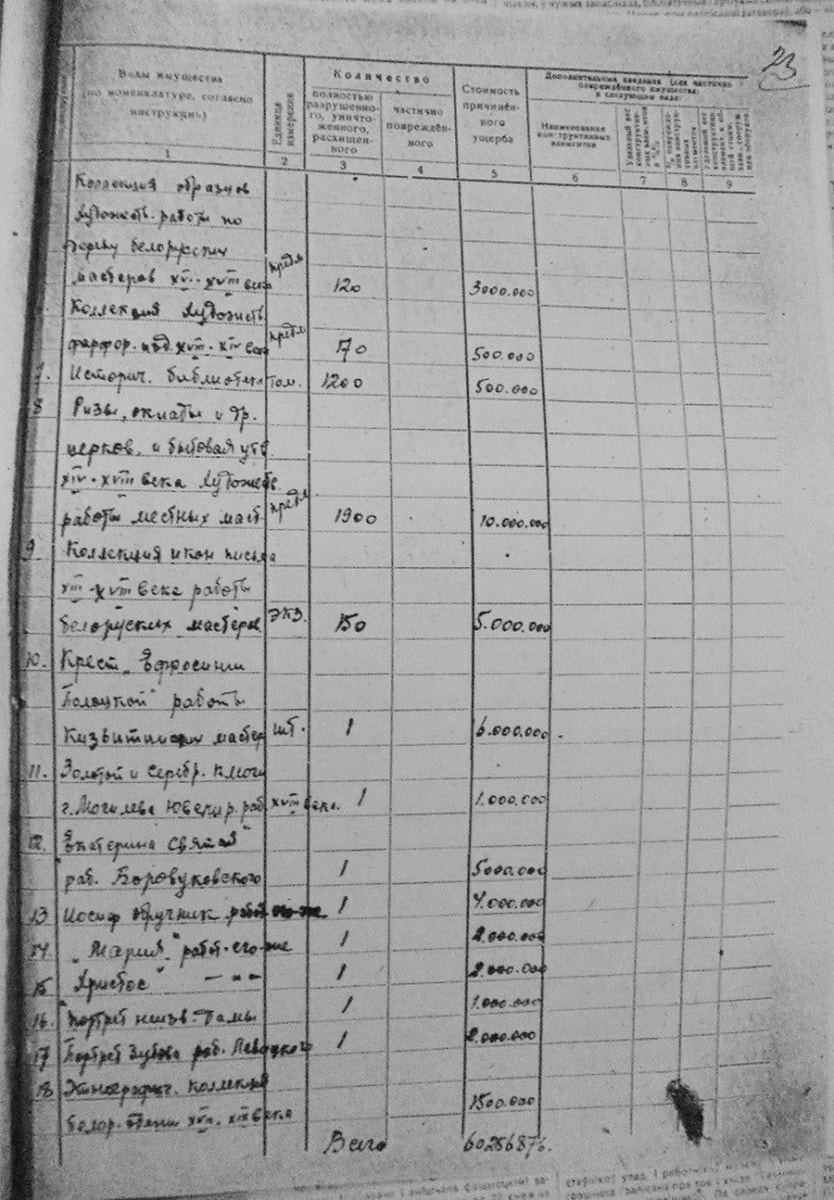 23
Виды имущества
(по номенклатуре, согласно
инструкции)
Единица измерения
Количество
полностью
разрушенно-
го, уничто-
женного,
расхищен-
ного
частично
повреждён-
ного
Стоимость
причинён-
ного
ущерба
Дополнительные сведения (для частично
повреждённого имущества)
в следующем виде:
Наименование
конструктивных
элементов
1 2 3 4 5 6 7 8 9
Коллекция образцов
худож‍еств. работы по
дереву белорусских
мастеров XVI-XVIII века предм 120 3000.000
Коллекция художеств
фарфор. XVIII-XIX век предм 170 500.000
7. Историч. библиотека том. 1200 500.000
8 Ризы, оклады и др.
церков. и бытовая утв.
XIV-XVIII века художеств.
работы местных маст. предм 1900 10.000.000
9. Коллекция икон письма
XIII-XVIII века работы
белоруских мастеров экз. 150 5.000.000
10. Крест „Ефросинии
Полоцкой" работы
мастер шт. 1 6.000.000
11. Золотой и серебр. ключи
г. Могилева ювелир. раб. XVIII века. 1 1.000.000
12. "Екатерина святая"
раб. Боровуковского 1 5000.000
13 Иосиф обручник работ его-же 1 4.000.000
14 „Мария" работ-его-же 1 2.000.000
15 "Христос" — „ — 1 2.000.000
16. Портрет неизв. дамы 1 1.000.000
17 Портрет Зубова раб. Левицкого 1 2.000.000
18 Этнографич. коллекция
белор. XVII-XIX века 1500.000
Всего 60256876.